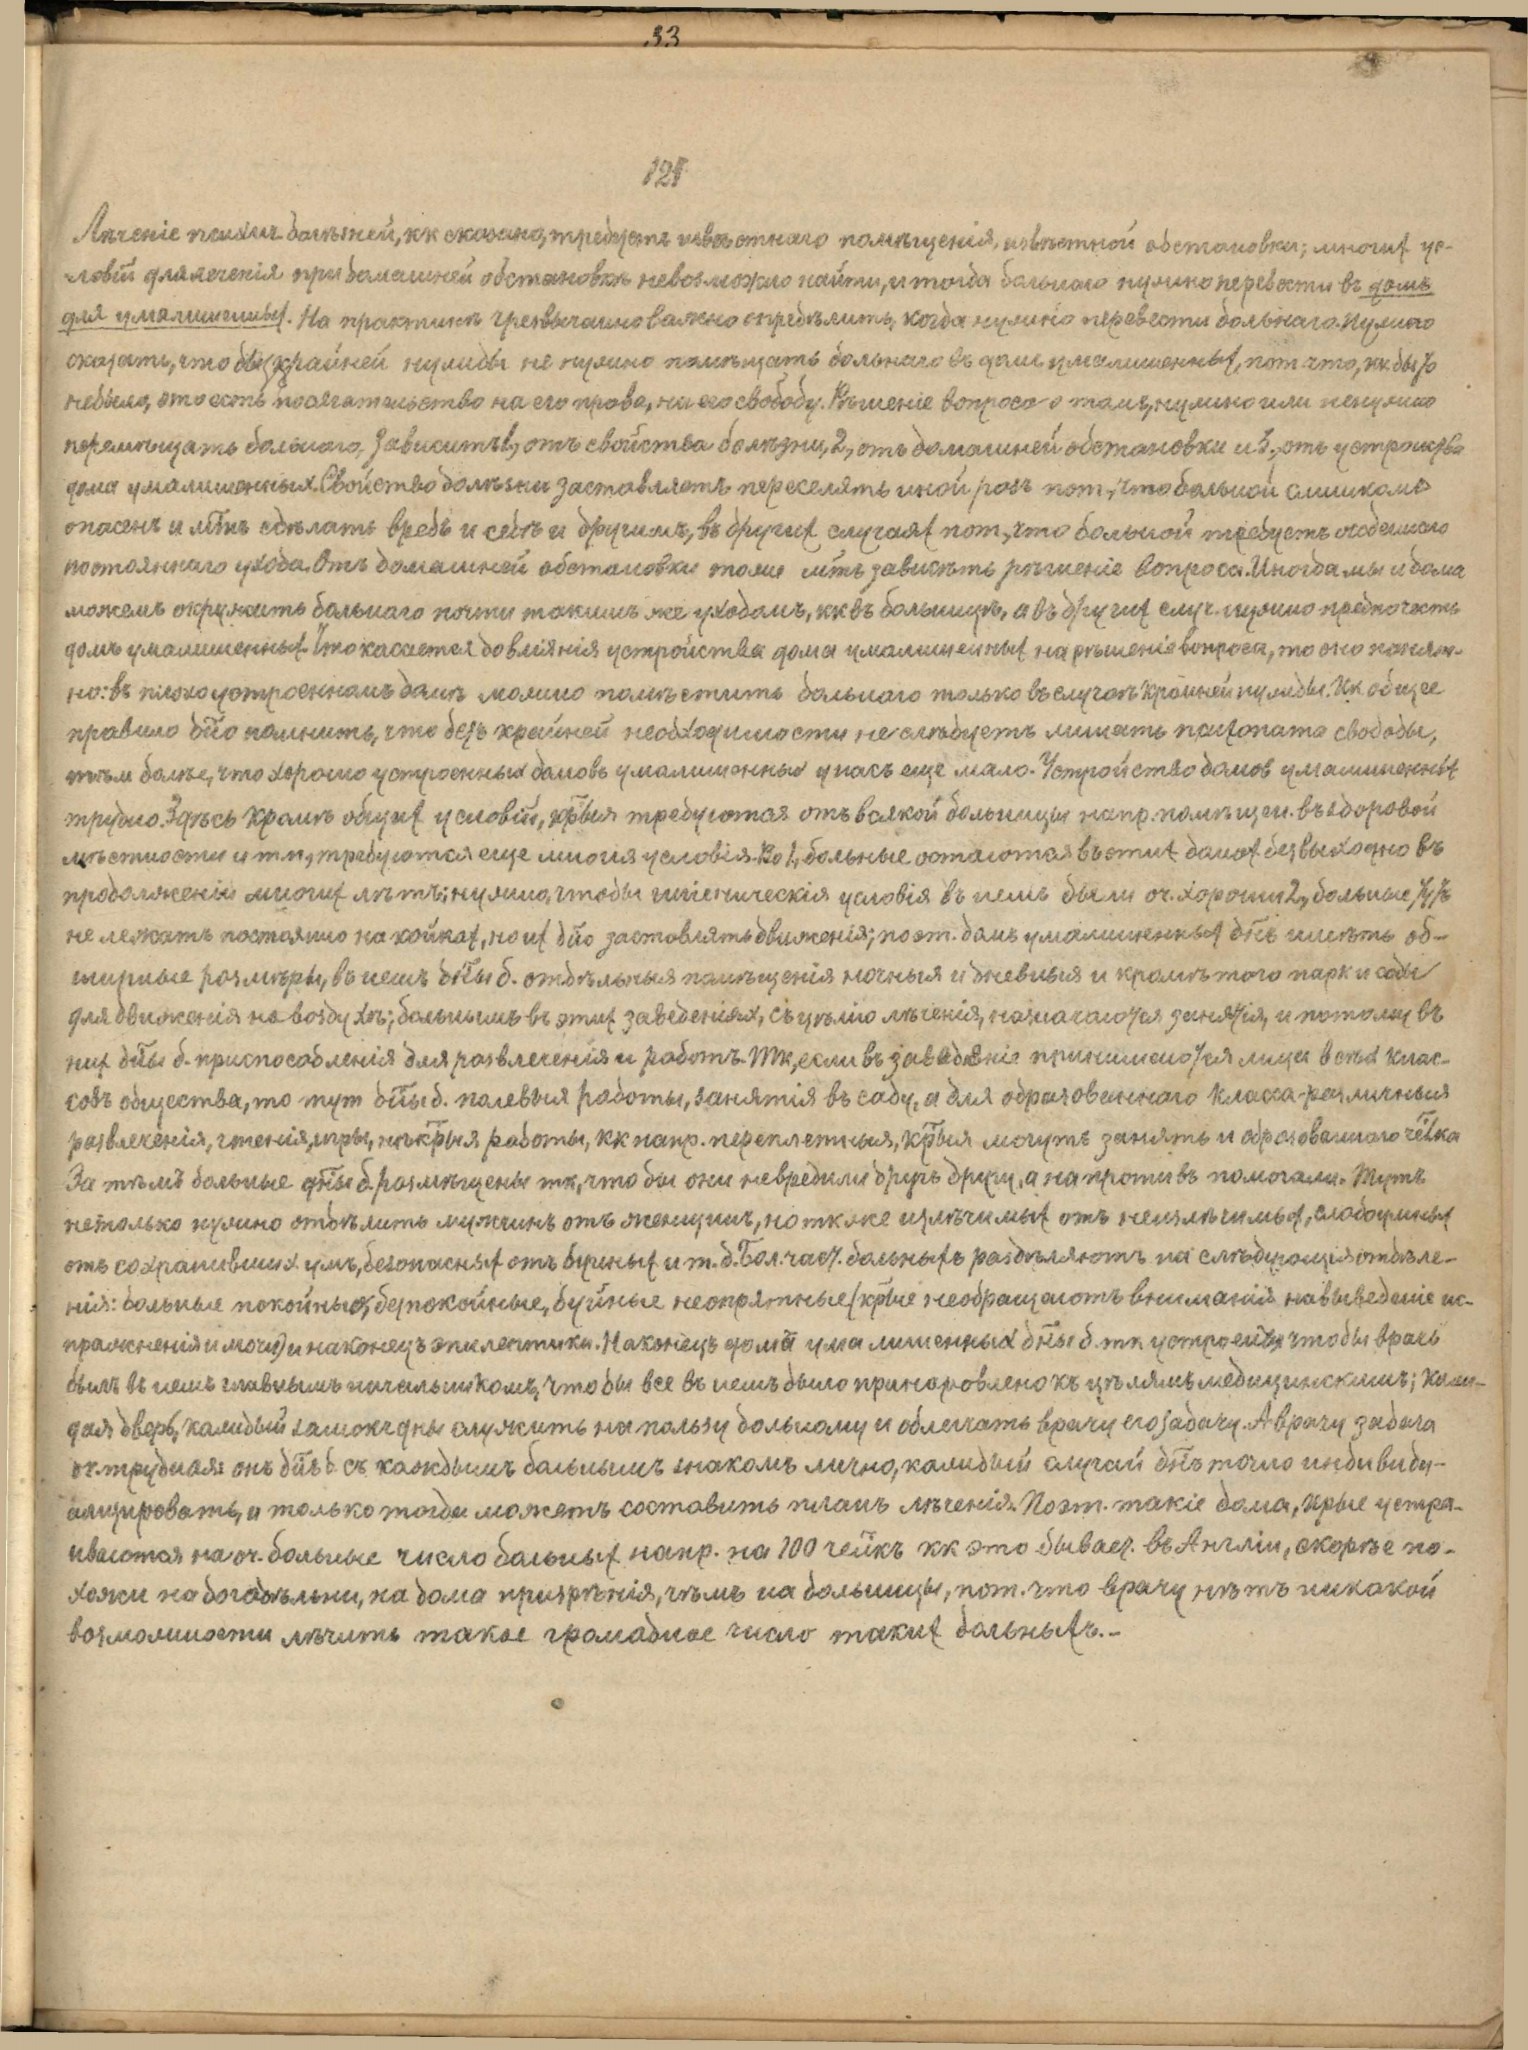 33
121
Лѣченіе психич. болѣзней, кк сказано, требуетъ извѣстнаго помѣщенія, извѣстной обстановки; многих ус-
ловій для леченія при домашней обстановкѣ невозможно найти, и тогда больнаго нужно перевести въ домъ
для умалишенных. На практикѣ чрезвычайно важно опредѣлить, когда нужно перевести больнаго. Нужно
сказать, что без крайней нужды не нужно помѣщать больнаго въ домъ умалишенных, пот. что, кк бы то
небыло, это есть посягательство на его права, на его свободу. Рѣшеніе вопроса о томъ, нужно или ненужно
перемѣщать больнаго, зависитъ 1, отъ свойства болѣзни, 2, отъ домашней обстановки и 3, отъ устройства
дома умалишенных. Свойство болѣзни заставляетъ переселять иной разъ пот., что больной слишкомъ
опасенъ и мтъ сдѣлать вредъ и себѣ и другимъ, въ других случаях пот., что больной требуетъ особеннаго
постояннаго ухода. Отъ домашней обстановки тоже мтъ зависѣть рѣшеніе вопроса. Иногда мы и дома
можемъ окружить больнаго почти такимъ же уходомъ, кк въ больницѣ, а въ других случ. нужно предпочесть
домъ умалишенных. Что касается до вліянія устройства дома умалишенных на рѣшеніе вопроса, то оно понят-
но: въ плохо устроенномъ домѣ можно помѣстить больнаго только въ случаѣ крайней нужды. Кк общее
правило дно помнить, что безъ крайней необходимости не слѣдуетъ лишать психопата свободы,
тѣм болѣе, что хорошо устроенных домовъ умалишенных у насъ еще мало. Устройство домов умалишенных
трудно. Здѣсь кромѣ общих условій, крыя требуются отъ всякой больницы напр. помѣщен. въ здоровой
мѣстности и т.п., требуются еще многія условія. Во 1, больные остаются въ этих домах безвыходно въ
продолженіи многих лѣтъ; нужно, чтобы гигіеническія условія въ немъ были оч. хороши 2, больные тутъ
не лежатъ постоянно на койках, но их дно заставлять движенія; поэт. домъ умалишенных днъ имѣть об-
ширные размѣры, въ немъ дны б. отдѣльныя помѣщенія ночныя и дневныя и кромѣ того парк и сады
для движенія на воздухѣ; больнымъ въ этих заведеніях, съ цѣлію лѣченія, назначаются занятія, и потому въ
них дны б. приспособленія для развлеченія и работъ. Тк, если въ заведеніе принимаются лица всѣх клас-
совъ общества, то тут дны б. полевыя работы, занятія въ саду, а для образованнаго класса - различныя
развлеченія, чтенія, игры, нѣкрыя работы, кк напр. переплетныя, крыя могутъ занять и образованнаго члвка
За тѣмъ больные дны б. размѣщены тк, что бы они невредили другъ другу, а на противъ помогали. Тутъ
нетолько нужно отдѣлить мужчинъ отъ женщинъ, но ткже излѣчимых отъ неизлѣчимых, слабоумных
отъ сохранивших умъ, безопасных отъ буйных и т.д. Бол. част. больныхъ раздѣляютъ на слѣдующія отдѣле-
нія: больные покойные, безпокойные, буйные неопрятные (крые необращаютъ вниманія на выведеніе ис-
пражненія и мочи) и наконецъ эпилептики. Наконецъ дома умалишенных дны б. тк устроены, чтобы врачъ
былъ въ немъ главнымъ начальникомъ, что бы все въ немъ было приноровлено къ цѣлямъ медицинскимъ; каж-
дая дверь, каждый замокъ дны служить на пользу больному и облегчать врачу его задачу. А врачу задача
оч. трудная: онъ днъ б. съ каждымъ больнымъ знакомъ лично, каждый случай днъ точно индивиду-
ализировать, и только тогда можетъ составить планъ лѣченія. Поэт. такіе дома, крые устра-
иваются на оч. большое число больных напр. на 700 члвкъ кк это бывает въ Англіи, скорѣе по-
хожи на богадѣльни, на дома призрѣнія, чѣмъ на больницы, пот. что врачу нѣтъ никакой
возможности лѣчить такое громадное число таких больныхъ.-